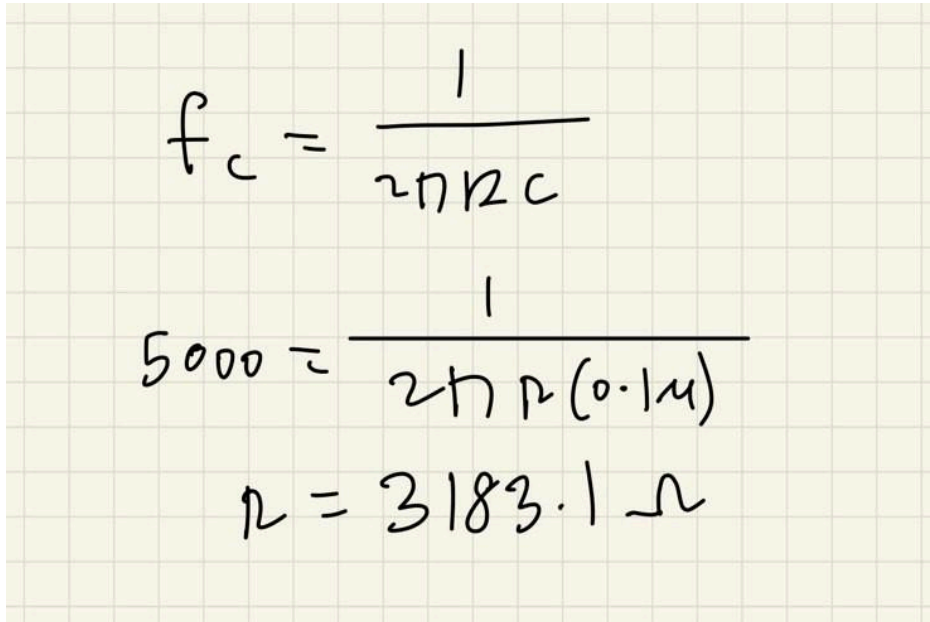 f_c = 1/(2πRC)
5000 = 1/(2πR(0.1μ))
R = 3183.1 Ω